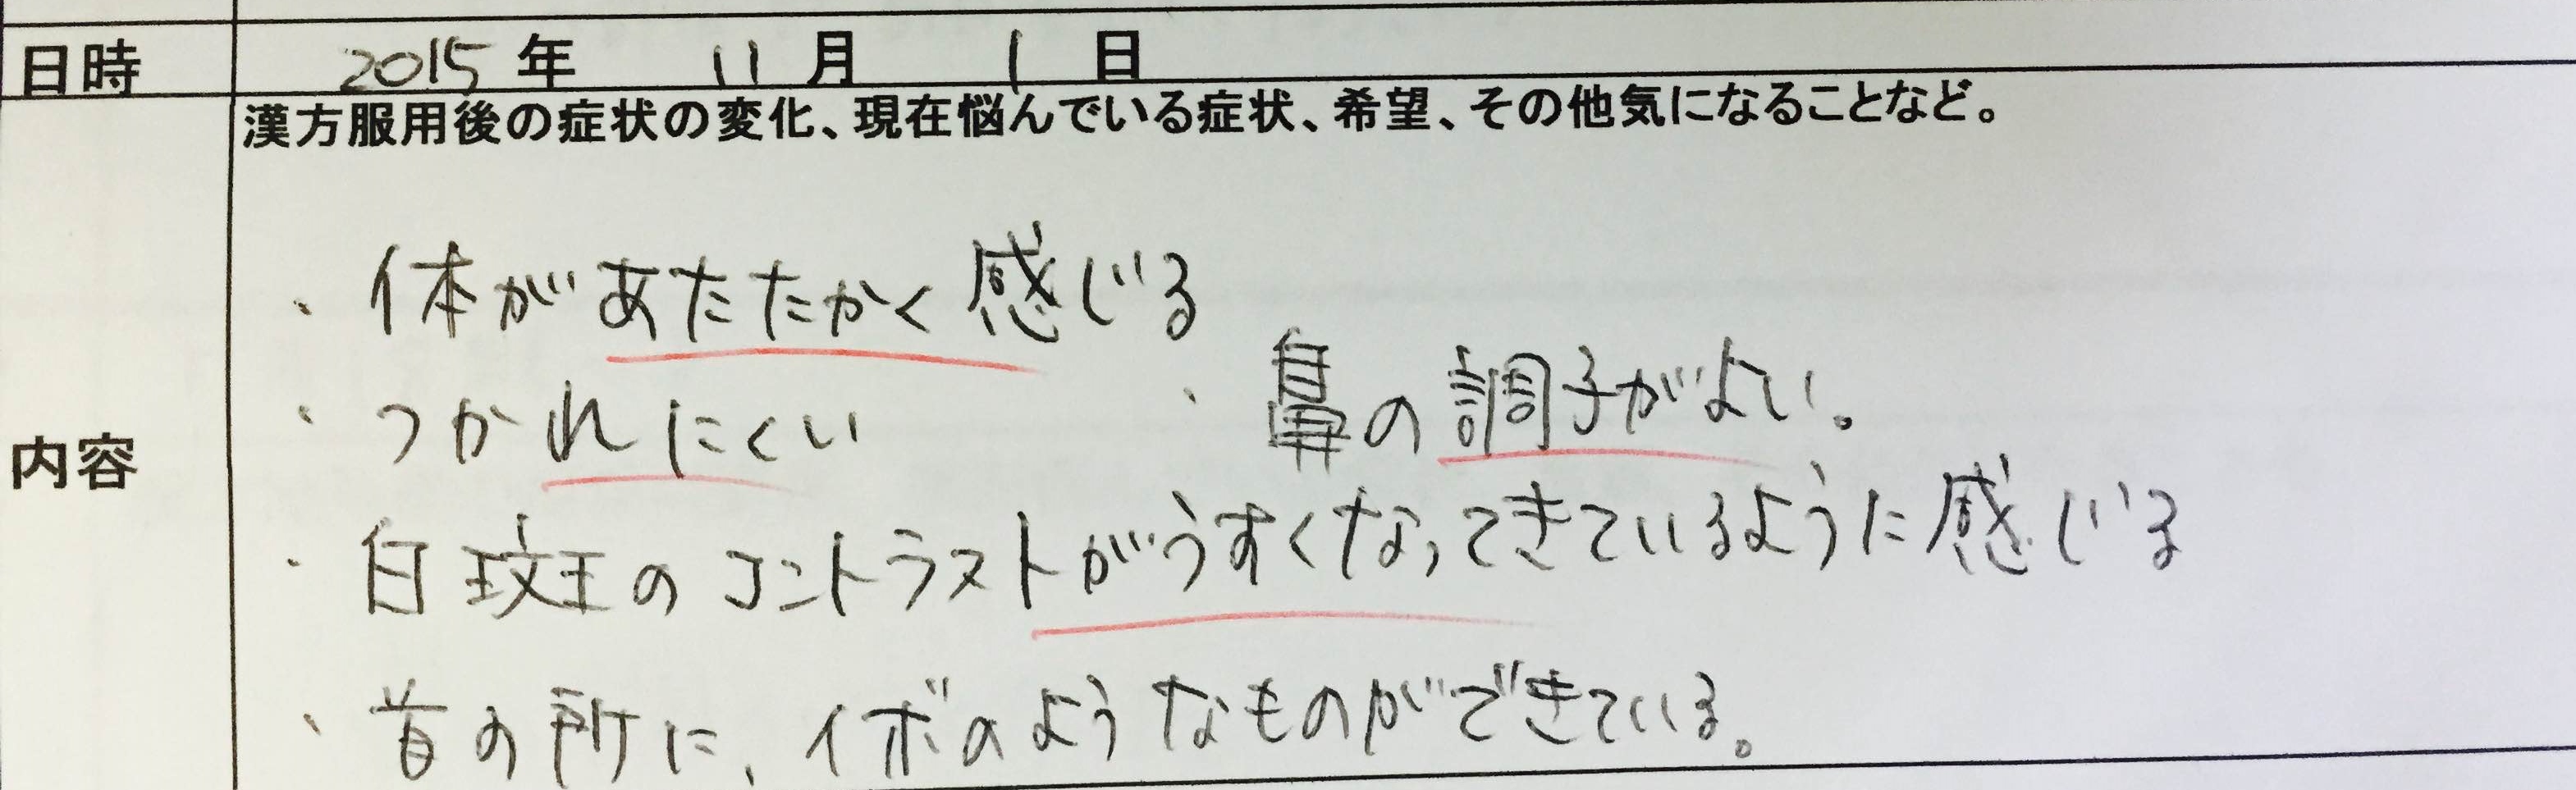 日時 2015年 11月 1日
漢方服用後の症状の変化、現在悩んでいる症状、希望、その他気になることなど。
内容
・体があたたかく感じる
・つかれにくい ・鼻の調子がよい。
・白斑のコントラストがうすくなってきているように感じる
・首の所に、イボのようなものができている。